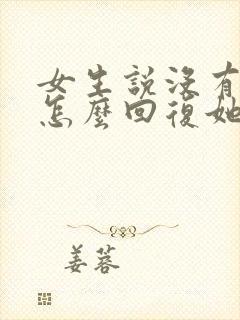 女生說沒有
怎麼回復她
姜蓉